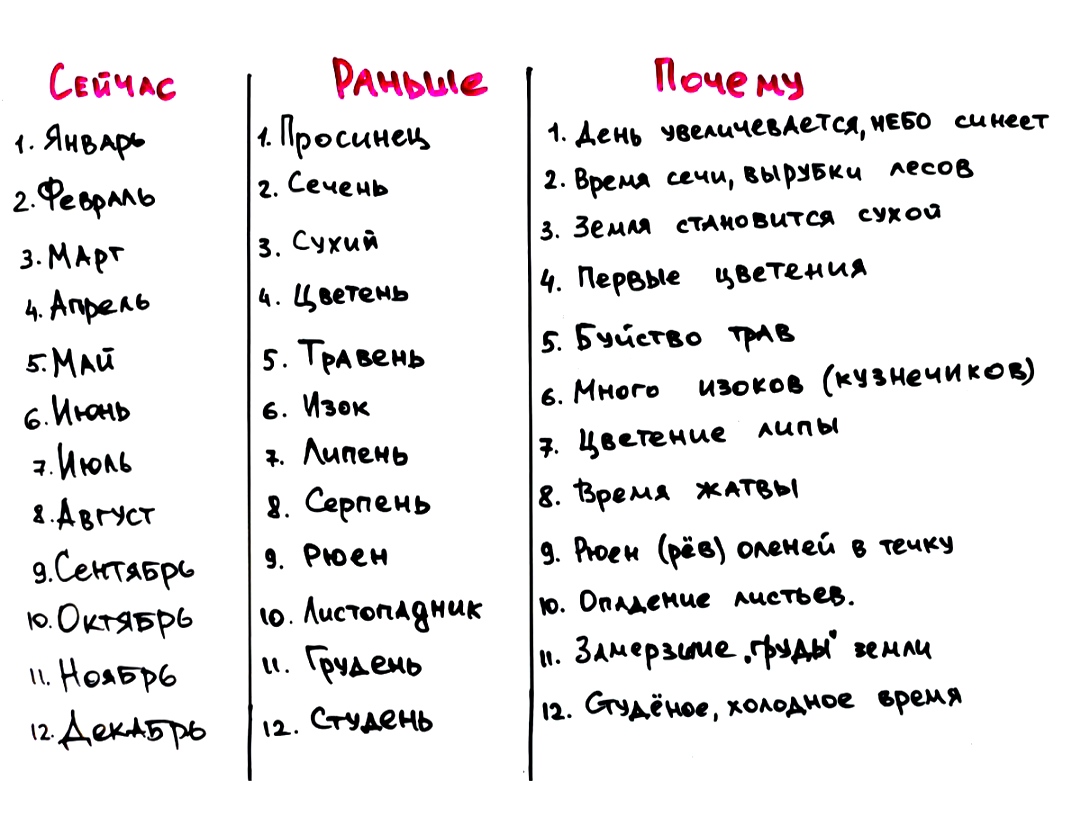 Сейчас Раньше Почему
1. Январь 1. Просинец 1. День увеличевается, небо синеет
2. Февраль 2. Сечень 2. Время сечи, вырубки лесов
3. Март 3. Сухий 3. Земля становится сухой
4. Апрель 4. Цветень 4. Первые цветения
5. Май 5. Травень 5. Буйство трав
6. Июнь 6. Изок 6. Много изоков (кузнечиков)
7. Июль 7. Липень 7. Цветение липы
8. Август 8. Серпень 8. Время жатвы
9. Сентябрь 9. Рюен 9. Рюен (рёв) оленей в течку
10. Октябрь 10. Листопадник 10. Опадение листьев.
11. Ноябрь 11. Грудень 11. Замерзшие „груды" земли
12. Декабрь 12. Студень 12. Студёное, холодное время